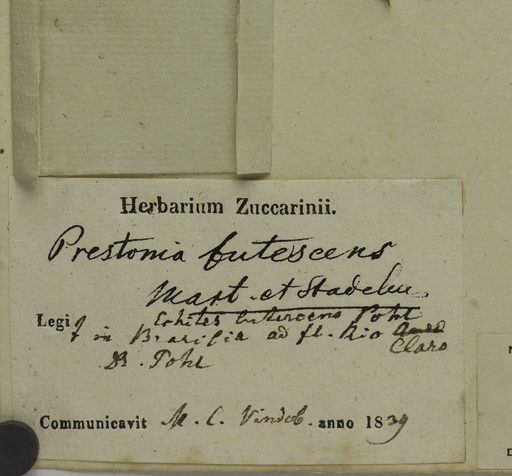 Herbarium Zuccarinii.
Prestonia lutescens
Mart. et Stadelm
Echites lutescens Pohl
Legit in Brasilia ad fl. Rio Claro
D. Pohl
Communicavit M. C. Vindob. anno 1839